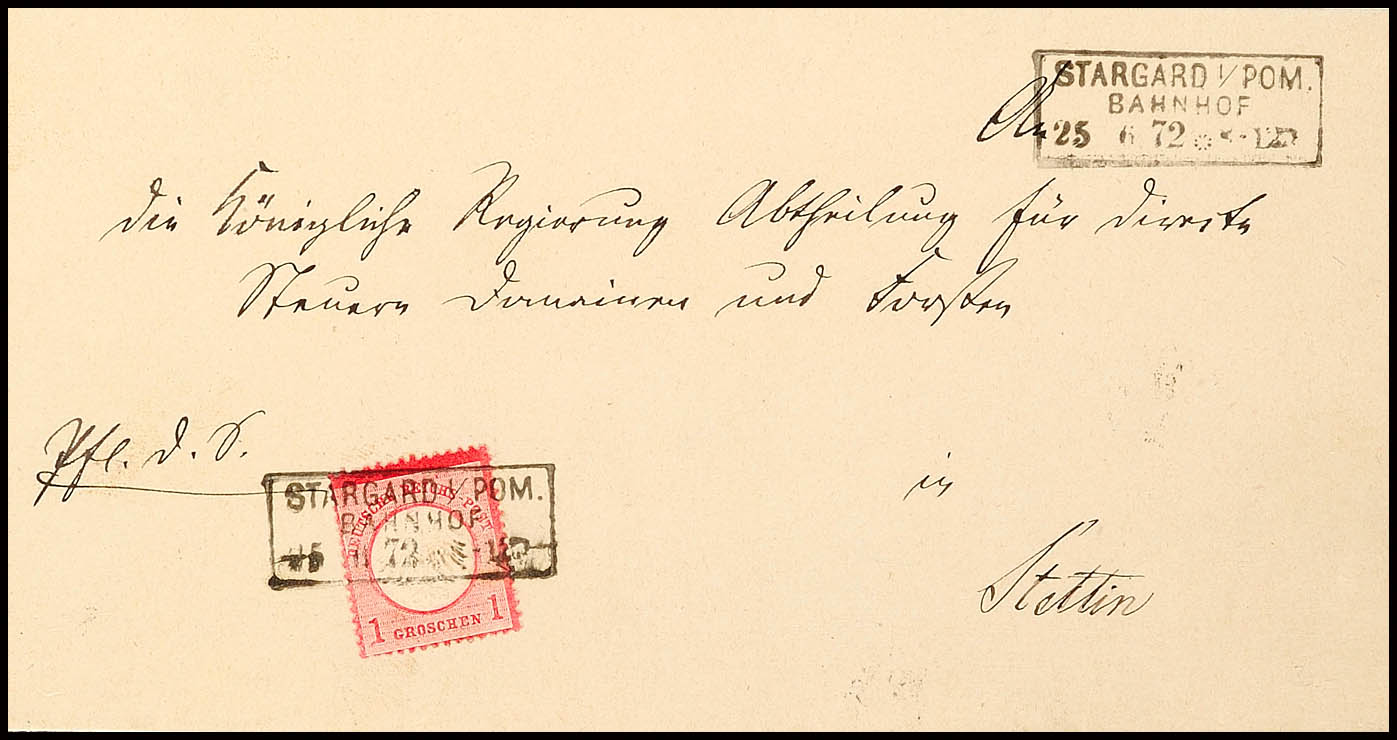 STARGARD I/POM.
BAHNHOF
25 6 72
An
die Königliche Regierung Abtheilung für directe
Steuern Domainen und Forsten
Pfl. d. S.
in
Stettin
STARGARD I/POM.
BAHNHOF
25 72
DEUTSCHE REICHS-POST
1 GROSCHEN 1